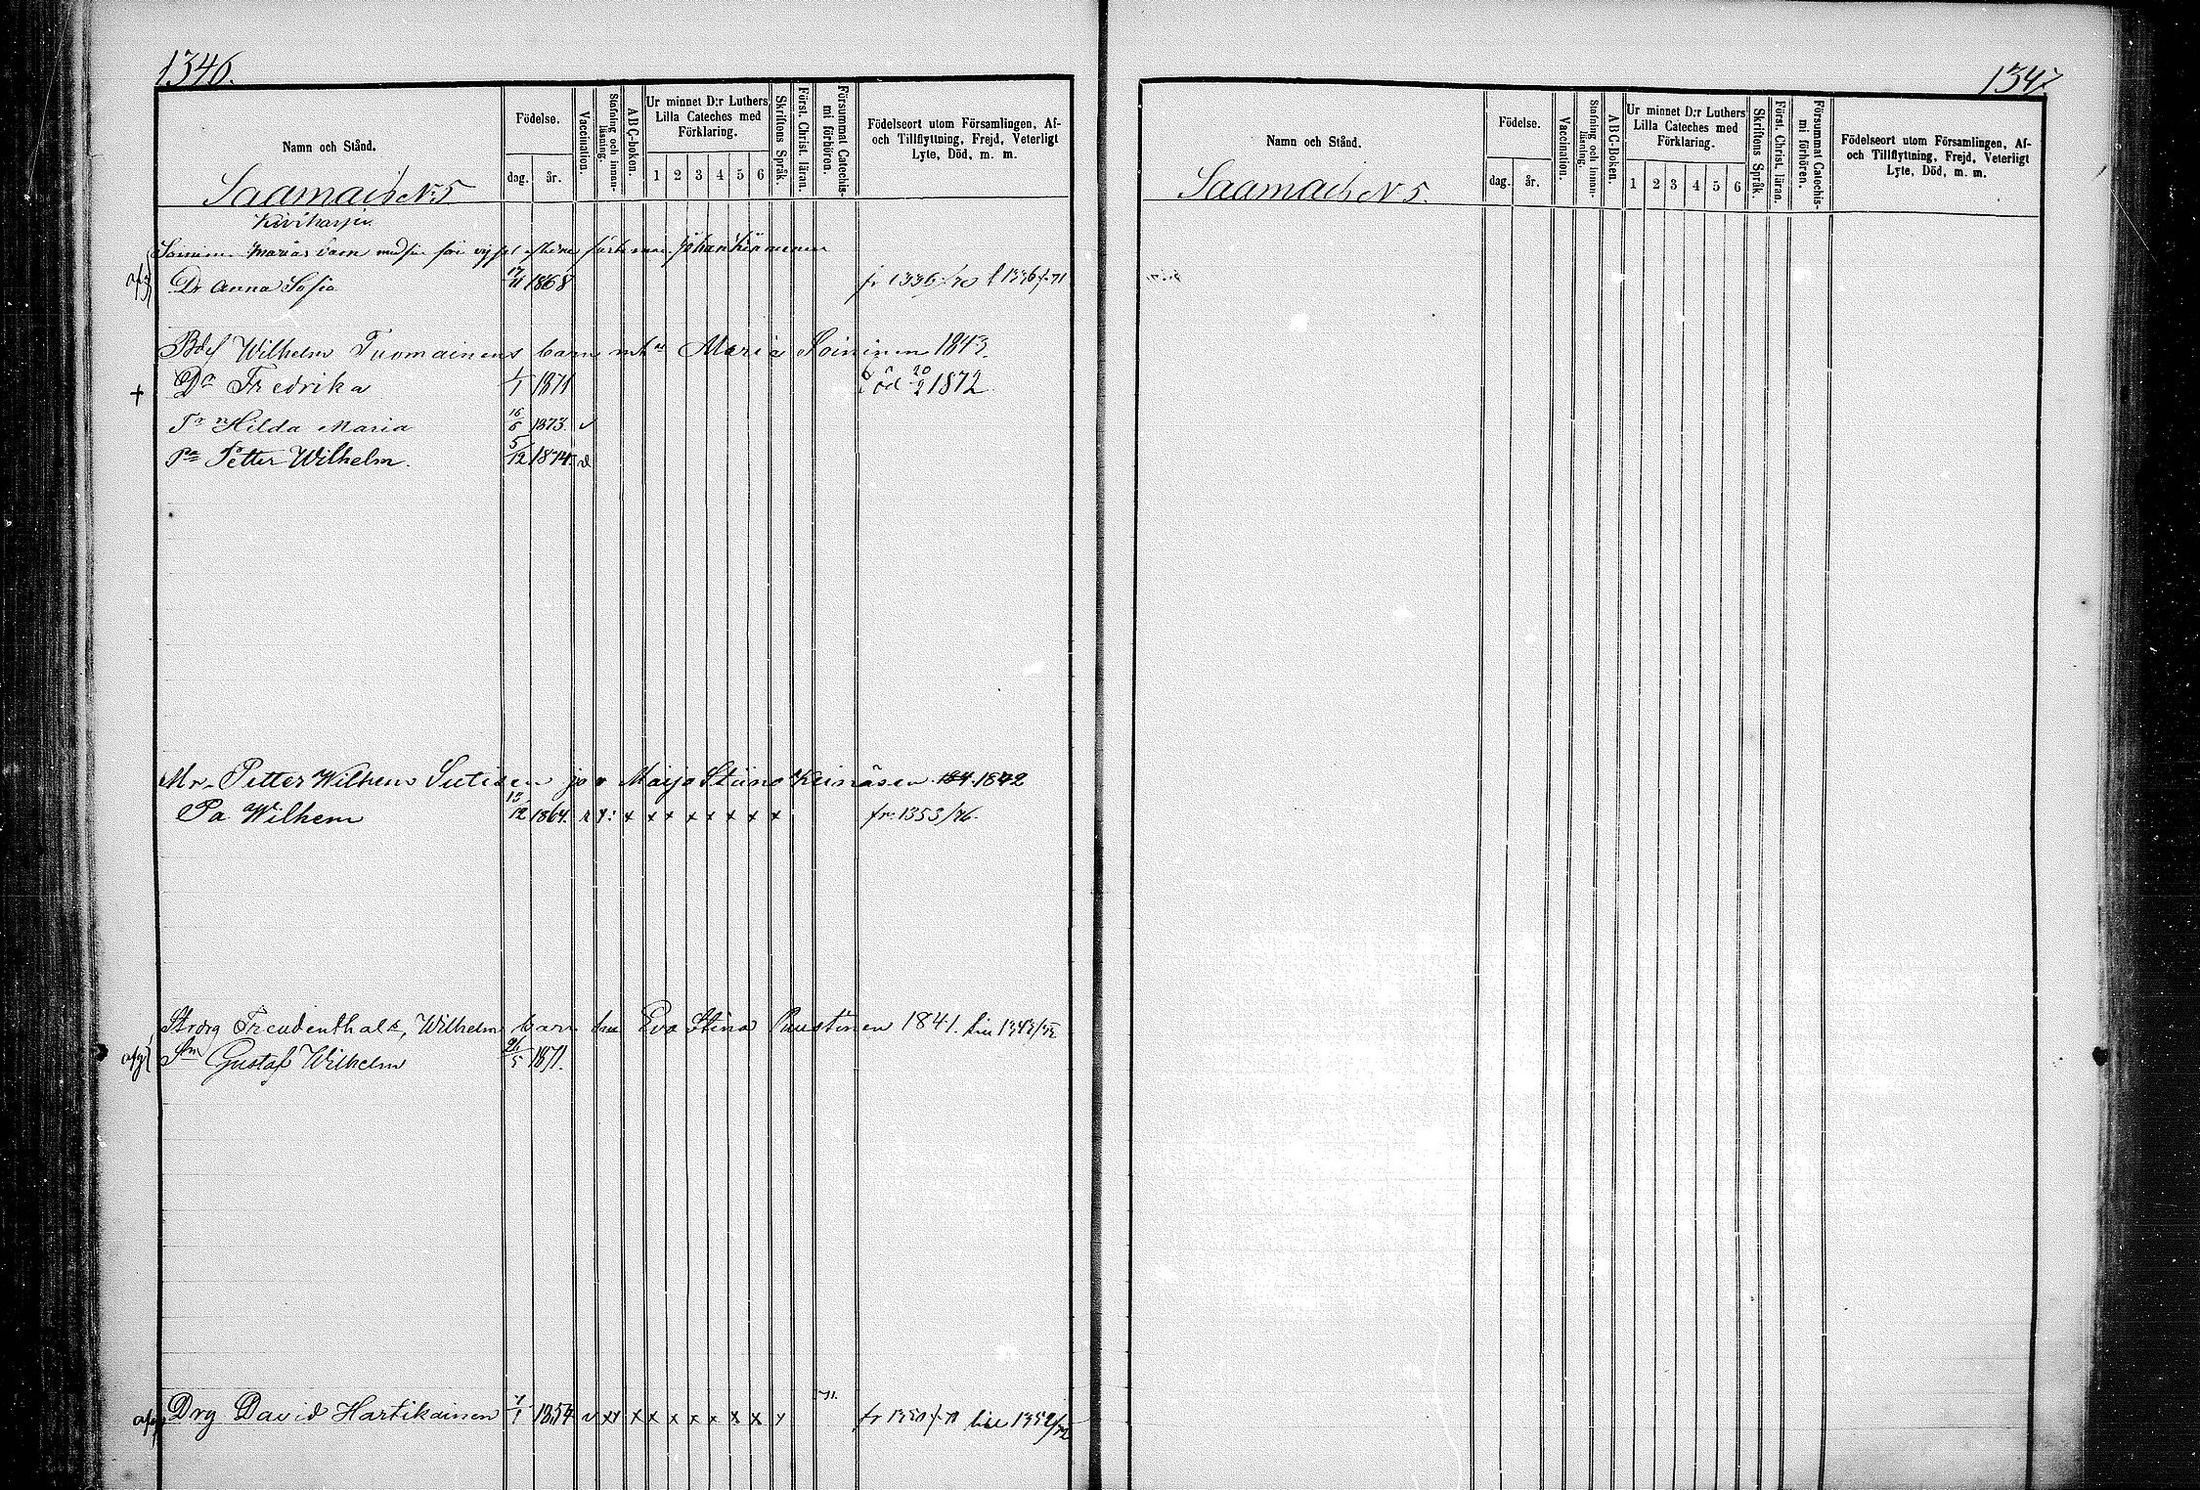 1346.
Namn och Stånd.
Födelse.
dag.
år.
Vaccination.
Stafning och innanläsning.
ABC-boken.
Ur minnet D:r Luthers Lilla Cateches med Förklaring.
1 2 3 4 5 6
Skriftens Språk.
Först. Christ. läran.
Försummat Catechismi förhören.
Födelseort utom Församlingen, Af- och Tillflyttning, Frejd, Veterligt Lyte, Död, m. m.
Saamais N:5
Kiviharju
Soininen Marias barn med sin
Johan
Dr Anna Sofia 17/11 1868 fr 1336/70 t 1336/71
Wilhelm Tuomainens barn m hu Maria Soininen 1843.
+ Dr Fredrika 1/1 1871 Död 20/2 1872
Hilda Maria 16/6 1873. v
Petter Wilhelm. 5/12 1874. v
Mr. Petter Wilhem Sutisen ja v Maija Stiina Keinäsen 1842
Pa Wilhem 13/12 1864. x x x x x x x x fr. 1353/76.
Freudenthals, Wilhelm barn hu Eva Stina Puustinen 1841. till 1343/72
afg Gustaf Wilhelm 26/5 1871.
71.
Drg David Hartikainen 7/1 1854 v xx x x x x x x x fr 1350/71 till 1352/72
1347
Namn och Stånd.
Födelse.
dag.
år.
Vaccination.
Stafning och innanläsning.
ABC-Boken.
Ur minnet D:r Luthers Lilla Cateches med Förklaring.
1 2 3 4 5 6
Skriftens Språk.
Först. Christ. läran.
Försummat Catechismi förhören.
Födelseort utom Församlingen, Af- och Tillflyttning, Frejd, Veterligt Lyte, Död, m. m.
Saamais N 5.